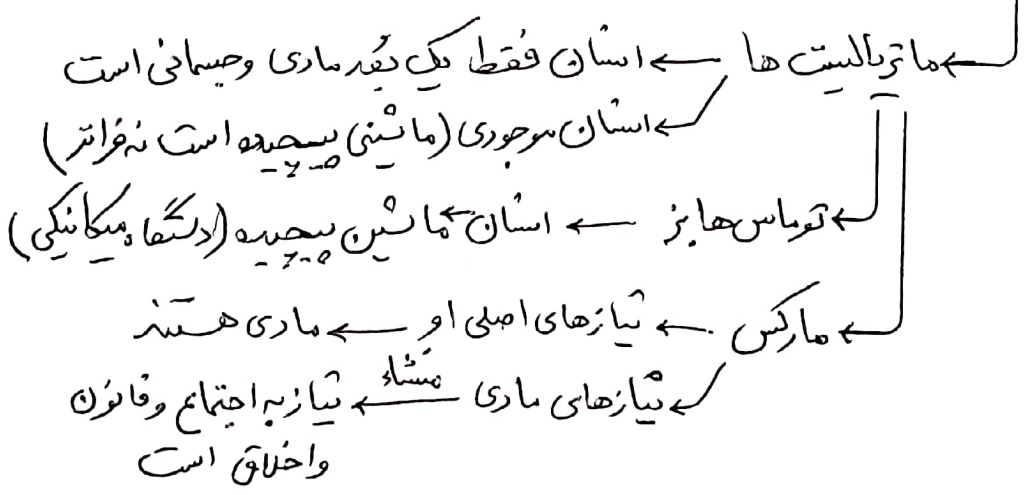 ماتریالیست ها ← انسان فقط یک بُعد مادی و جسمانی است
← انسان موجودی (ماشینی پیچیده است نه فراتر)
← توماس هابز ← انسان ← ماشین پیچیده (دستگاه میکانیکی)
← مارکس ← نیازهای اصلی او ← مادی هستند
← نیازهای مادی منشاء ← نیاز به اجتماع و قانون
و اخلاق است